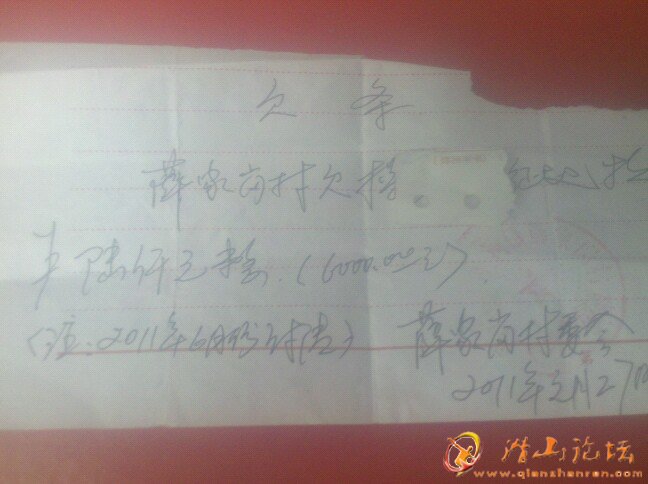 欠 条
薛家岗村欠
陆仟元整.(6000.00元).
(注:2011年6月份付清) 薛家岗村委会
2011年元月27日
潜山论坛
www.qianshanren.com